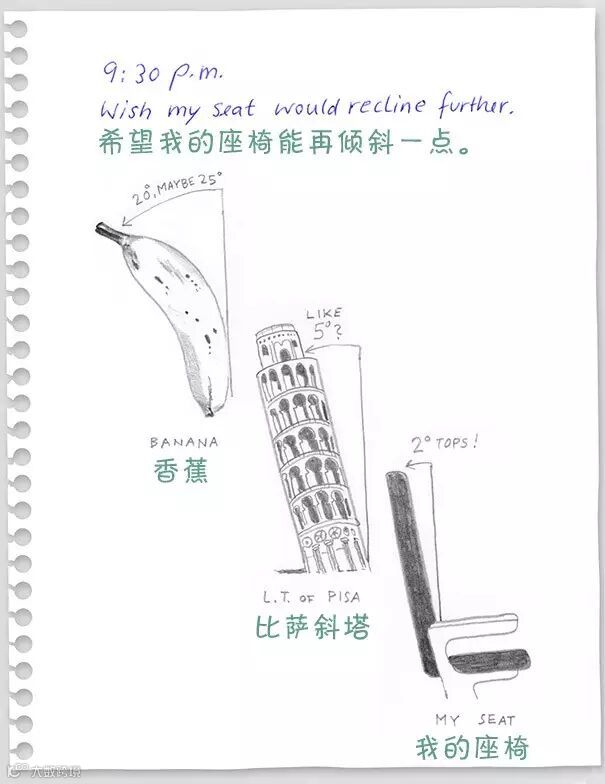 9:30 p.m.
Wish my seat would recline further.
希望我的座椅能再倾斜一点。
20°, MAYBE 25°
LIKE
5°?
BANANA
香蕉
2° TOPS!
L.T. OF PISA
比萨斜塔
MY SEAT
我的座椅
大数跨境